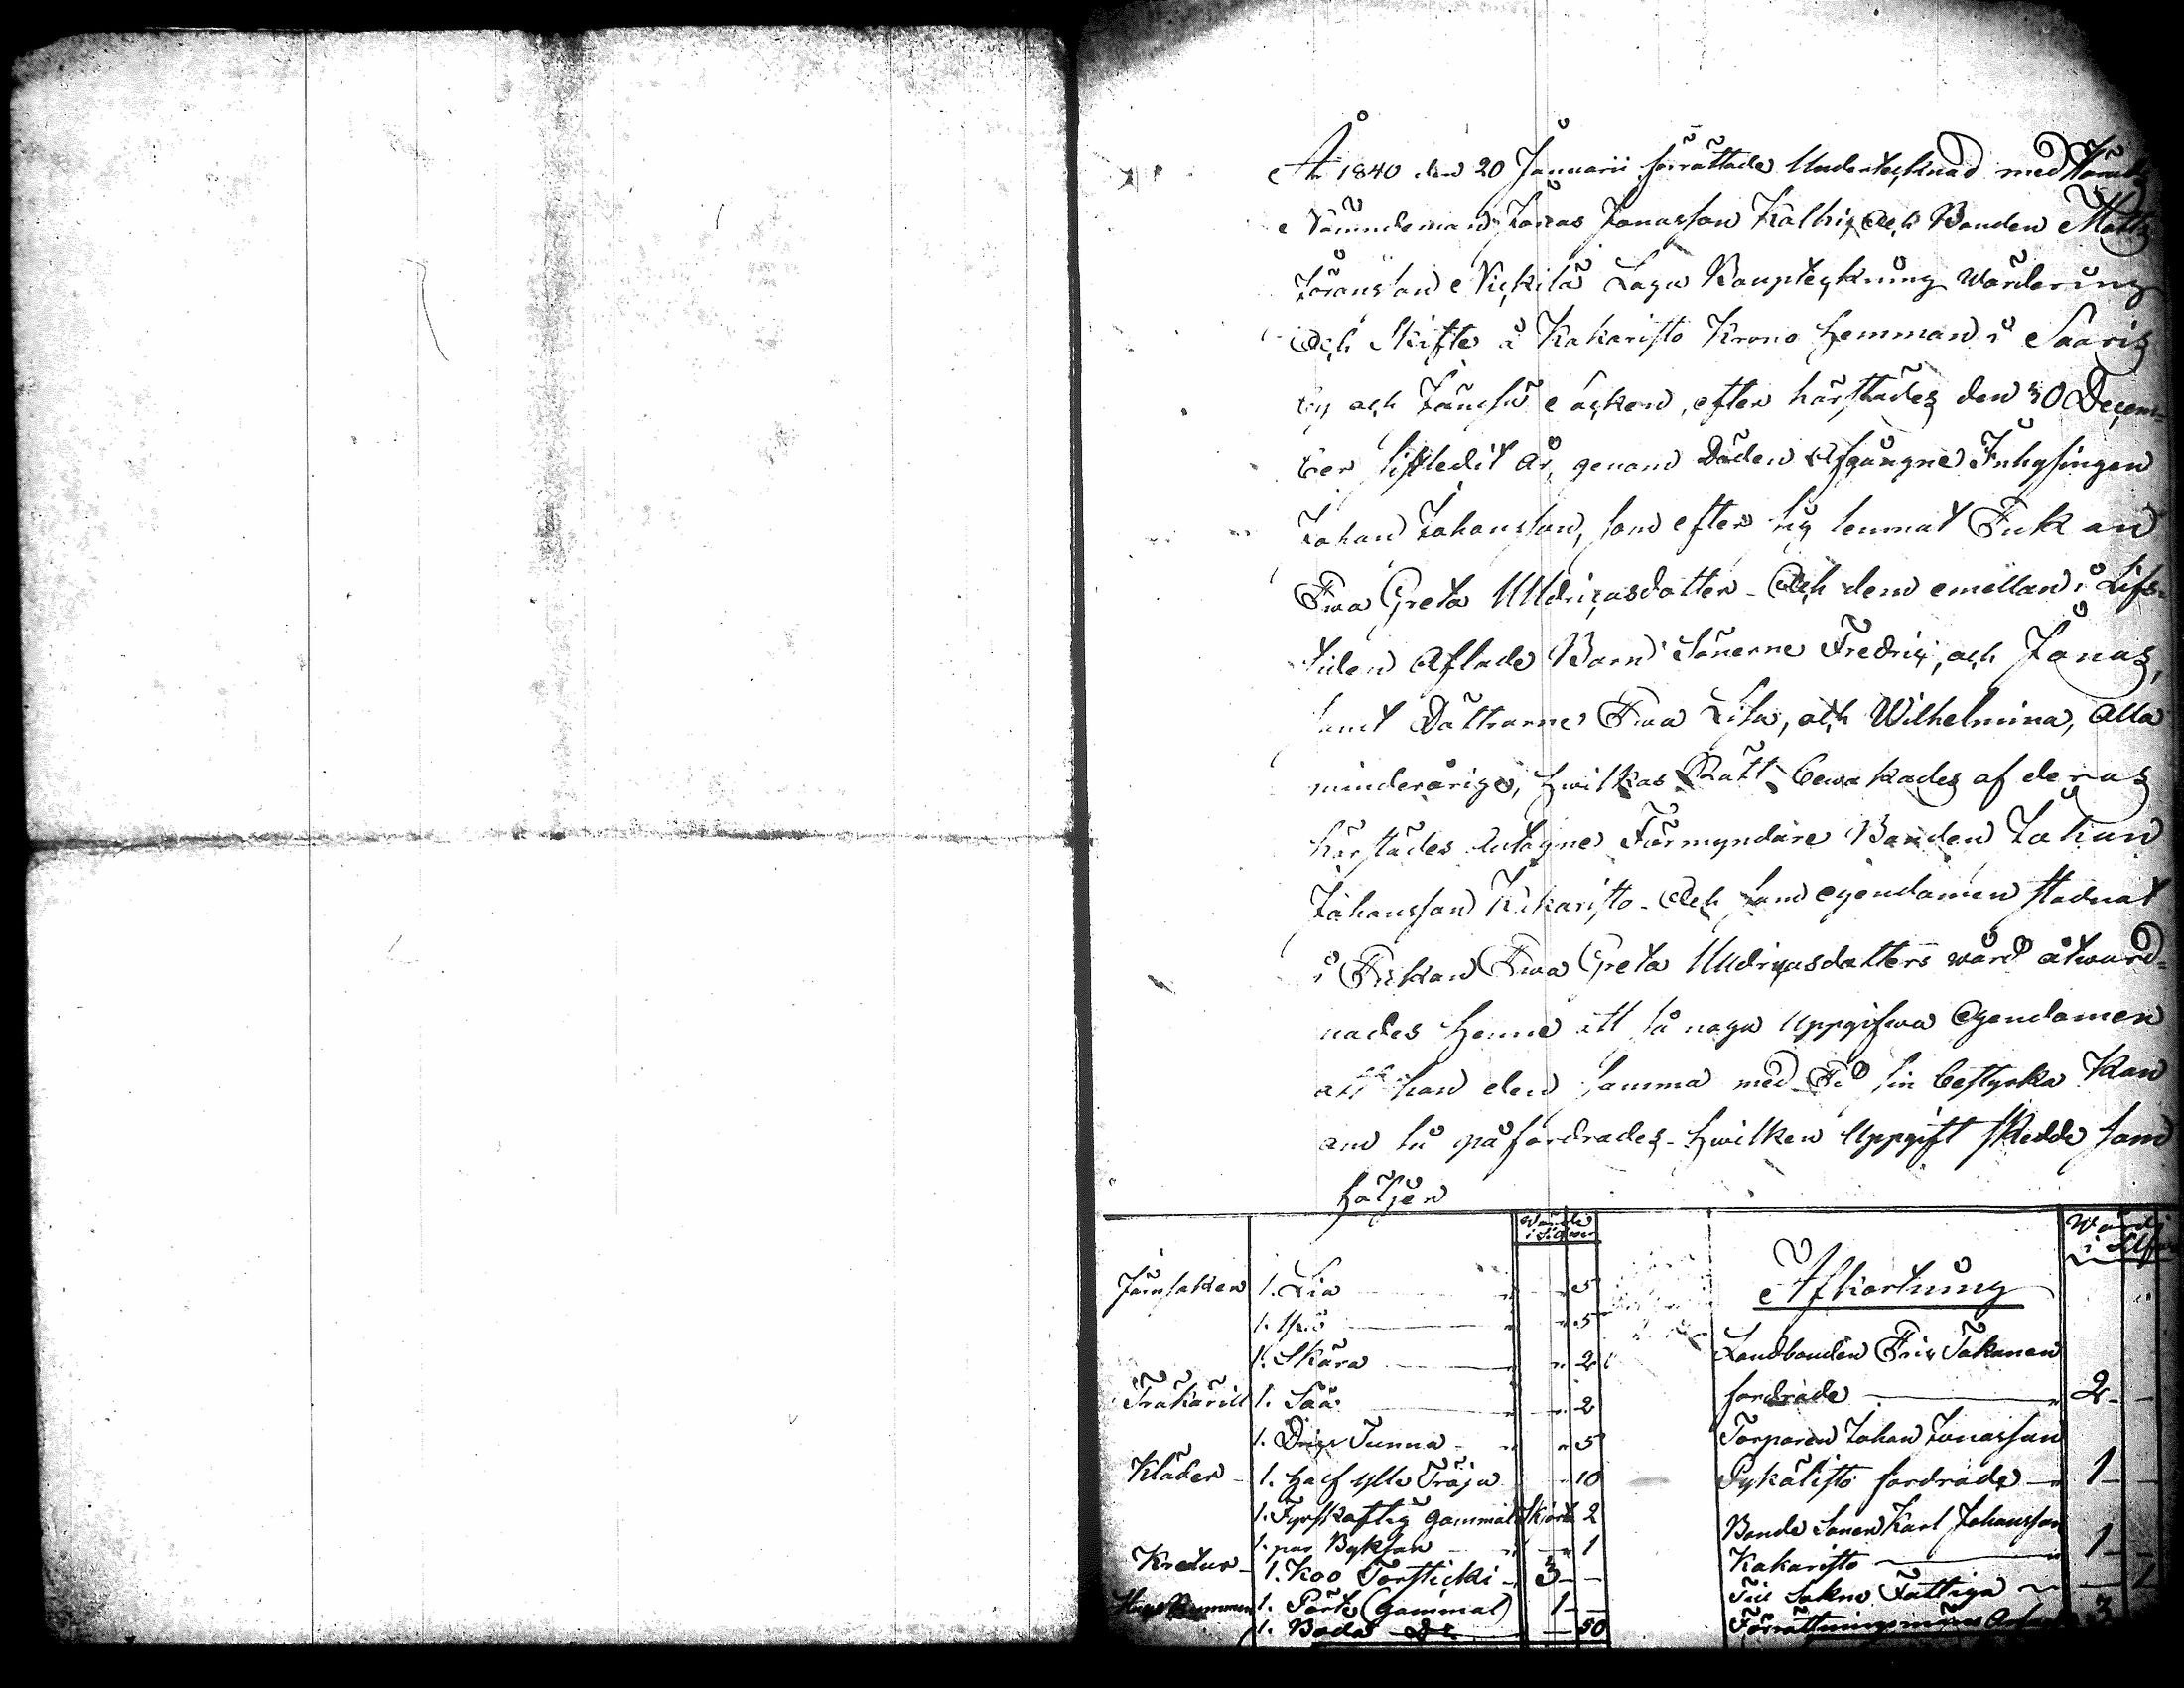 År 1840 den 20 Januarii förrättade Undertecknad med Härads
Nämndeman Jonas Jonasson Källvi, och Bonden Matts
Göransson Nickilä Laga Bouptekning Wärdering
och Skifte å Kakaristo Krono hemman i Saaris
by och Socken, efter härstädes den 30 Decem-
ber sistledit År, genom Döden Afgångne Inhysingen
Johan Johansson, som efter sig lemnat Enkan
Ewa Greta Ulldricasdotter - Och dem emellan i Lifs-
tiden Aflade Barn Sönerne Fredric, och Jonas,
samt Döttrarne Ewa Lisa, och Wilhelmina, Alla
minderårige, hwilkas Rätt bewakades af deras
härstädes Antagne Förmyndare Bonden Johan
Johansson Kakaristo - Och som egendomen stadnat
i Enkan Ewa Greta Ulldricasdotters wård åtward-
nades henne att så noga Uppgifwa Egendomen
att hon den samma med Ed sin bestyrka Kan
om så påfordrades - hwilken Uppgift skedde som
följer
Wärde i Silfver
Järnsaker 1. Lia 5
1. Yxa 5
1. Skära 2
Träkäril 1. Såå 2
1. Dricks Tunna 5
Kläder 1. Half ylle Tröja 10
1. Fyrskaftig gammal skjorta 2
1. par Byksor 1
Kreatur 1. Koo Torsticki 3
1. Pörte (gammal) 1
1. Boda D:o 50
Wärde i Silfver
Afkortning
Landbonden Eric Takanen
fordrade 2
Torparen Johan Jonasson
Pykälistö fordrade 1
Bonde Sonen Karl Johansson
Kakaristo 1
Till Sokne Fattiga
Förrättningsmäns 3